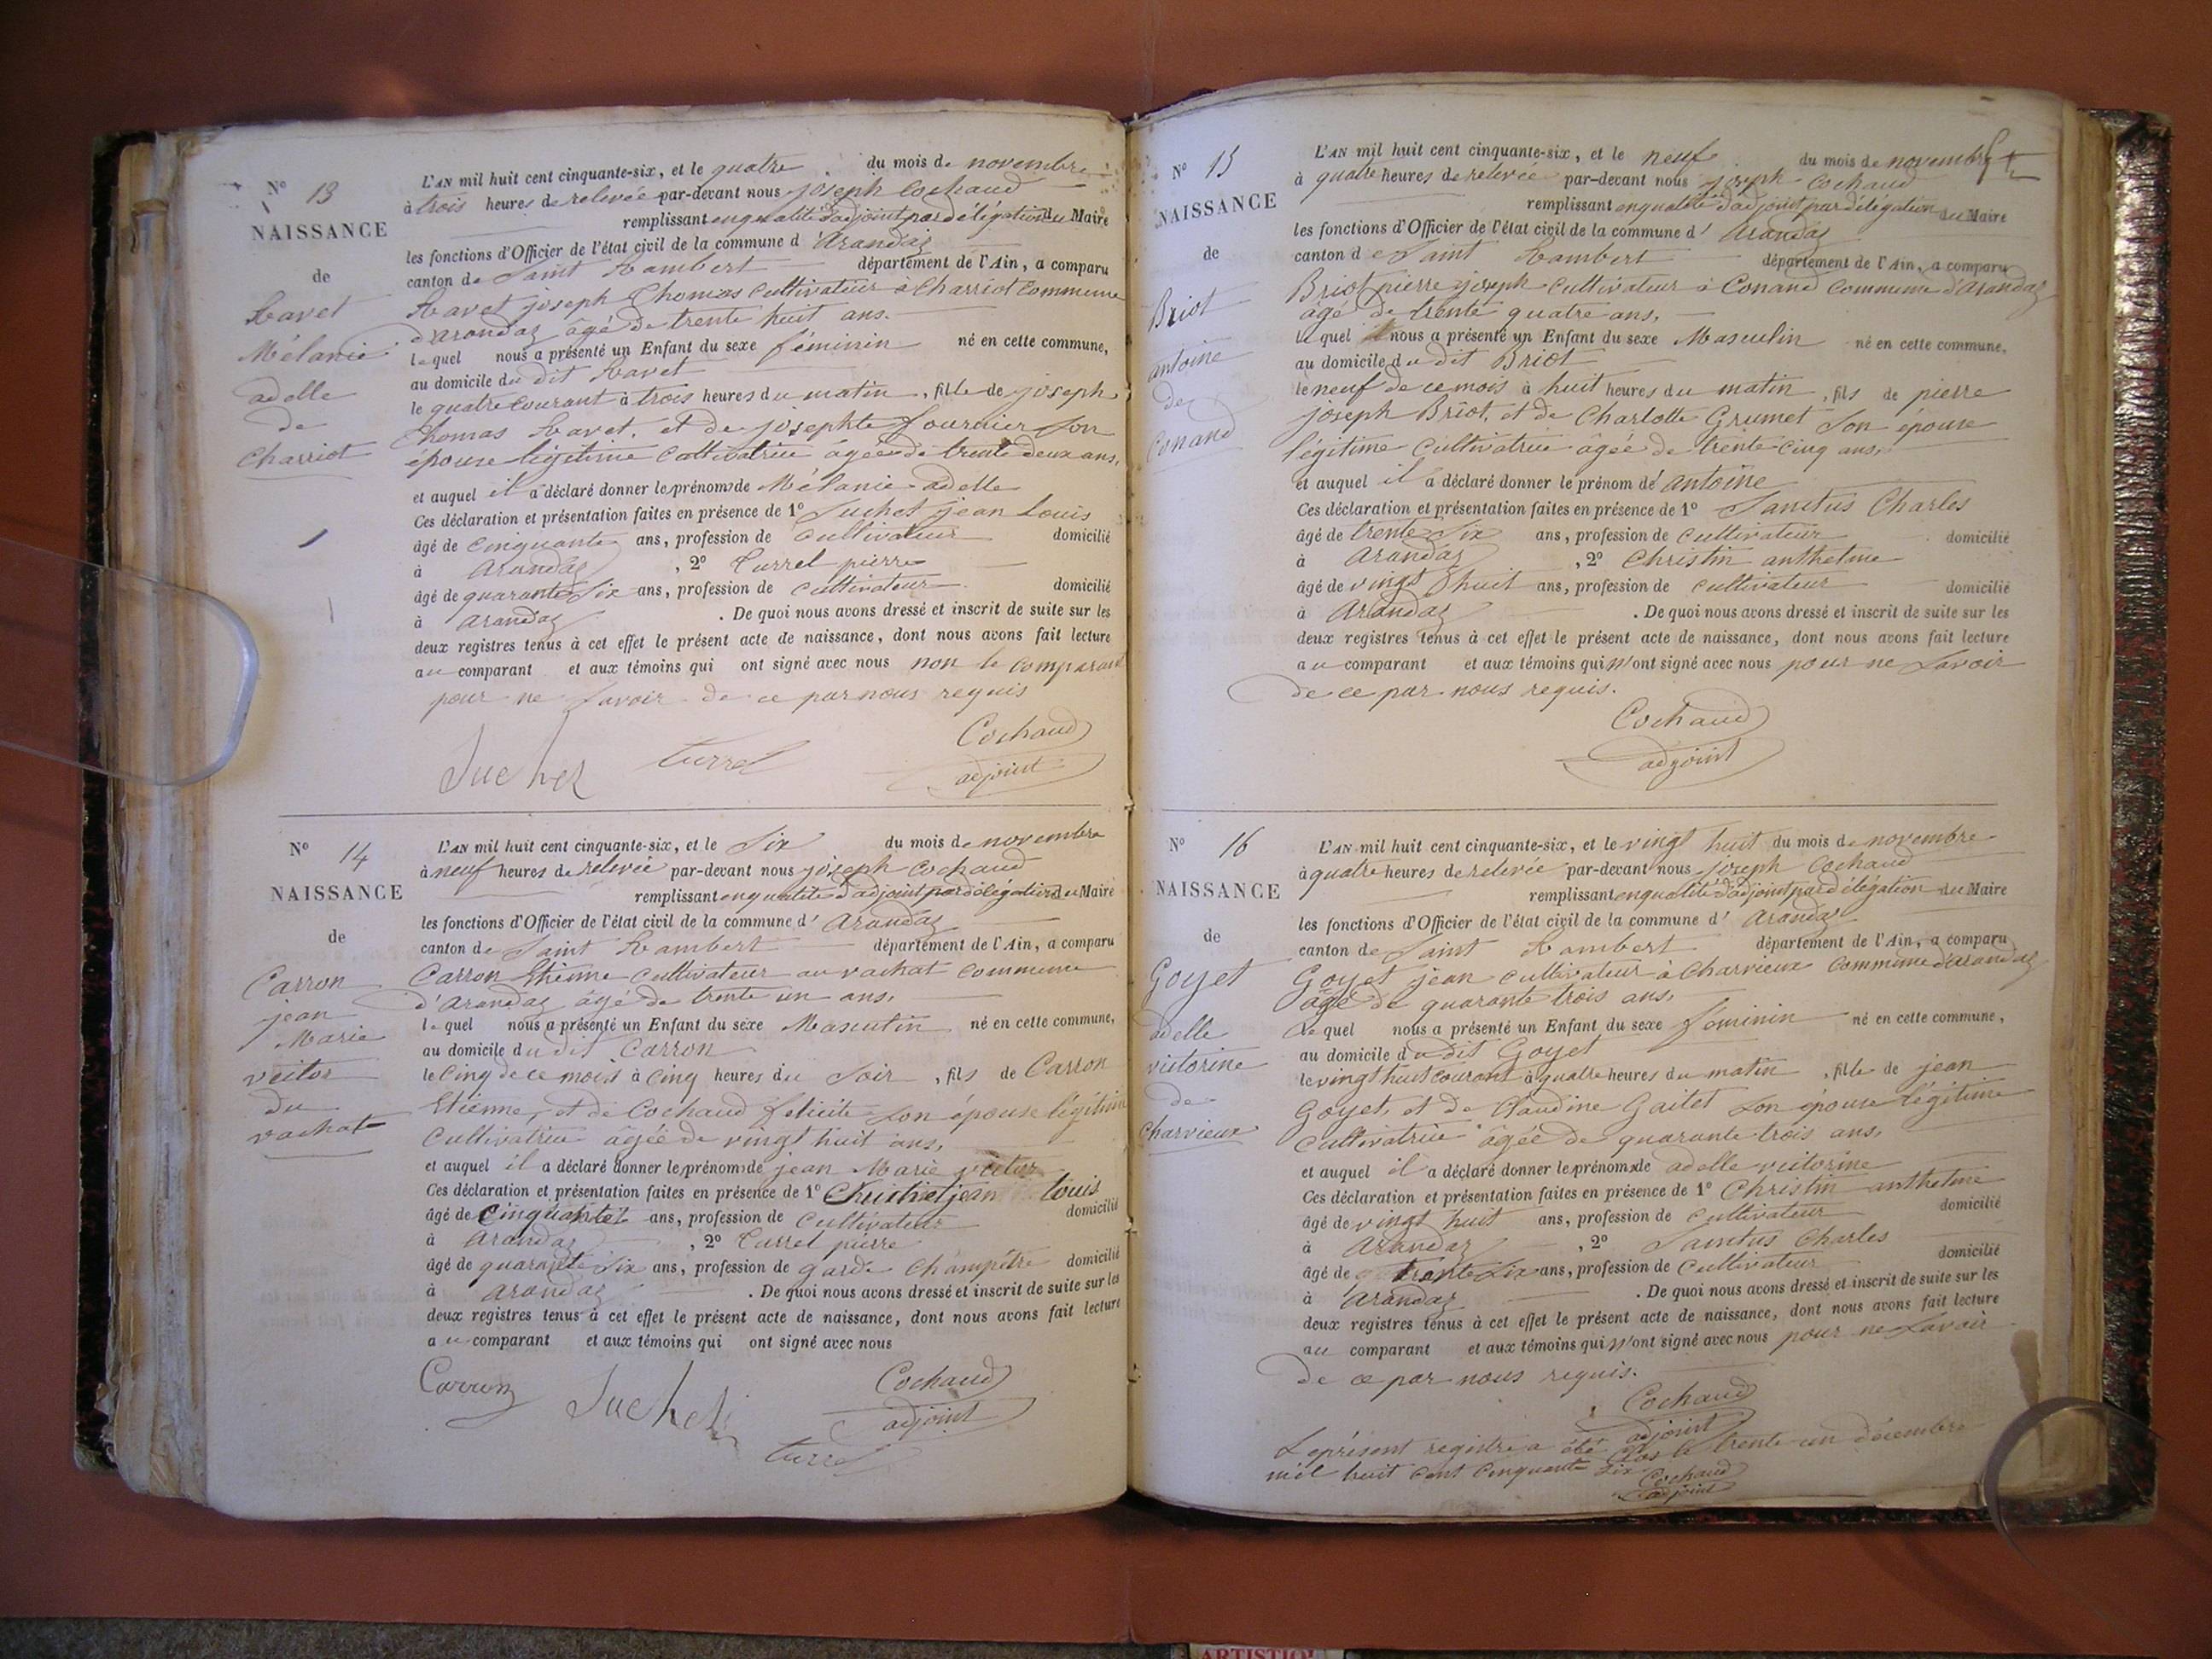 N° 13
NAISSANCE
de
Ravet
Mélanie
adelle
de
Charriot
L'AN mil huit cent cinquante-six, et le quatre du mois de novembre
à trois heures de relevée par-devant nous joseph Cochaud
remplissant en qualité d'adjoint par délégation du Maire
les fonctions d'Officier de l'état civil de la commune d'Arandaz
canton de Saint Rambert département de l'Ain, a comparu
Ravet joseph Thomas Cultivateur à Charriot commune
d'arandaz âgé de trente huit ans.
lequel nous a présenté un Enfant du sexe féminin né en cette commune,
au domicile du dit Ravet
le quatre courant à trois heures du matin, fille de joseph
Thomas Ravet, et de josephte fournier son
épouse légitime Cultivatrice âgée de trente deux ans,
et auquel il a déclaré donner les prénoms de Mélanie adelle
Ces déclaration et présentation faites en présence de 1° Suchet jean Louis
âgé de cinquante ans, profession de Cultivateur domicilié
à Arandaz, 2° Turrel pierre
âgé de quarante six ans, profession de cultivateur domicilié
à arandaz. De quoi nous avons dressé et inscrit de suite sur les
deux registres tenus à cet effet le présent acte de naissance, dont nous avons fait lecture
au comparant et aux témoins qui ont signé avec nous non le comparant
pour ne savoir de ce par nous requis
Cochaud
Suchet turrel adjoint
N° 14
NAISSANCE
de
Carron
jean
Marie
victor
du
vachat
L'AN mil huit cent cinquante-six, et le Six du mois de novembre
à neuf heures de relevée par-devant nous joseph Cochaud
remplissant en qualité d'adjoint par délégation du Maire
les fonctions d'Officier de l'état civil de la commune d'Arandaz
canton de Saint Rambert département de l'Ain, a comparu
Carron Etienne cultivateur au vachat commune
d'Arandaz âgé de trente un ans,
lequel nous a présenté un Enfant du sexe Masculin né en cette commune,
au domicile du dit Carron
le Cinq de ce mois à cinq heures du Soir, fils de Carron
Etienne, et de Cochaud felicité son épouse légitime
Cultivatrice âgée de vingt huit ans,
et auquel il a déclaré donner les prénoms de jean Marie victor
Ces déclaration et présentation faites en présence de 1° Suchet jean louis
âgé de Cinquante ans, profession de Cultivateur domicilié
à Arandaz, 2° Turrel pierre
âgé de quarante six ans, profession de garde Champêtre domicilié
à arandaz. De quoi nous avons dressé et inscrit de suite sur les
deux registres tenus à cet effet le présent acte de naissance, dont nous avons fait lecture
au comparant et aux témoins qui ont signé avec nous
Carron Suchet Cochaud
adjoint
turrel
N° 15
NAISSANCE
de
Briot
antoine
de
Conand
L'AN mil huit cent cinquante-six, et le neuf du mois de novembre
à quatre heures de relevée par-devant nous joseph Cochaud
remplissant en qualité d'adjoint par délégation du Maire
les fonctions d'Officier de l'état civil de la commune d'Arandaz
canton de Saint Rambert département de l'Ain, a comparu
Briot pierre joseph Cultivateur à Conand Commune d'Arandaz
âgé de trente quatre ans,
lequel nous a présenté un Enfant du sexe Masculin né en cette commune,
au domicile du dit Briot
le neuf de ce mois à huit heures du matin, fils de pierre
joseph Briot, et de Charlotte Grumet son épouse
légitime Cultivatrice âgée de trente cinq ans,
et auquel il a déclaré donner le prénom de antoine
Ces déclaration et présentation faites en présence de 1° Sanctus Charles
âgé de trente Six ans, profession de Cultivateur domicilié
à Arandaz, 2° Christin anthelme
âgé de vingt huit ans, profession de cultivateur domicilié
à Arandaz. De quoi nous avons dressé et inscrit de suite sur les
deux registres tenus à cet effet le présent acte de naissance, dont nous avons fait lecture
au comparant et aux témoins qui n'ont signé avec nous pour ne savoir
de ce par nous requis.
Cochaud
adjoint
N° 16
NAISSANCE
de
Goyet
adelle
victorine
de
Charvieux
L'AN mil huit cent cinquante-six, et le vingt huit du mois de novembre
à quatre heures de relevée par-devant nous joseph Cochaud
remplissant en qualité d'adjoint par délégation du Maire
les fonctions d'Officier de l'état civil de la commune d'Arandaz
canton de Saint Rambert département de l'Ain, a comparu
Goyet jean cultivateur à Charvieux Commune d'arandaz
âgé de quarante trois ans,
lequel nous a présenté un Enfant du sexe féminin né en cette commune,
au domicile du dit Goyet
le vingt huit courant à quatre heures du matin, fille de jean
Goyet, et de Claudine Gaitet son épouse légitime
cultivatrice âgée de quarante trois ans,
et auquel il a déclaré donner les prénoms de adelle victorine
Ces déclaration et présentation faites en présence de 1° Christin anthelme
âgé de vingt huit ans, profession de cultivateur domicilié
à Arandaz, 2° Sanctus Charles
âgé de trente six ans, profession de Cultivateur domicilié
à Arandaz. De quoi nous avons dressé et inscrit de suite sur les
deux registres tenus à cet effet le présent acte de naissance, dont nous avons fait lecture
au comparant et aux témoins qui n'ont signé avec nous pour ne savoir
de ce par nous requis.
Cochaud
adjoint
Le présent registre a été clos le trente un décembre
mil huit cent cinquante six
Cochaud
adjoint